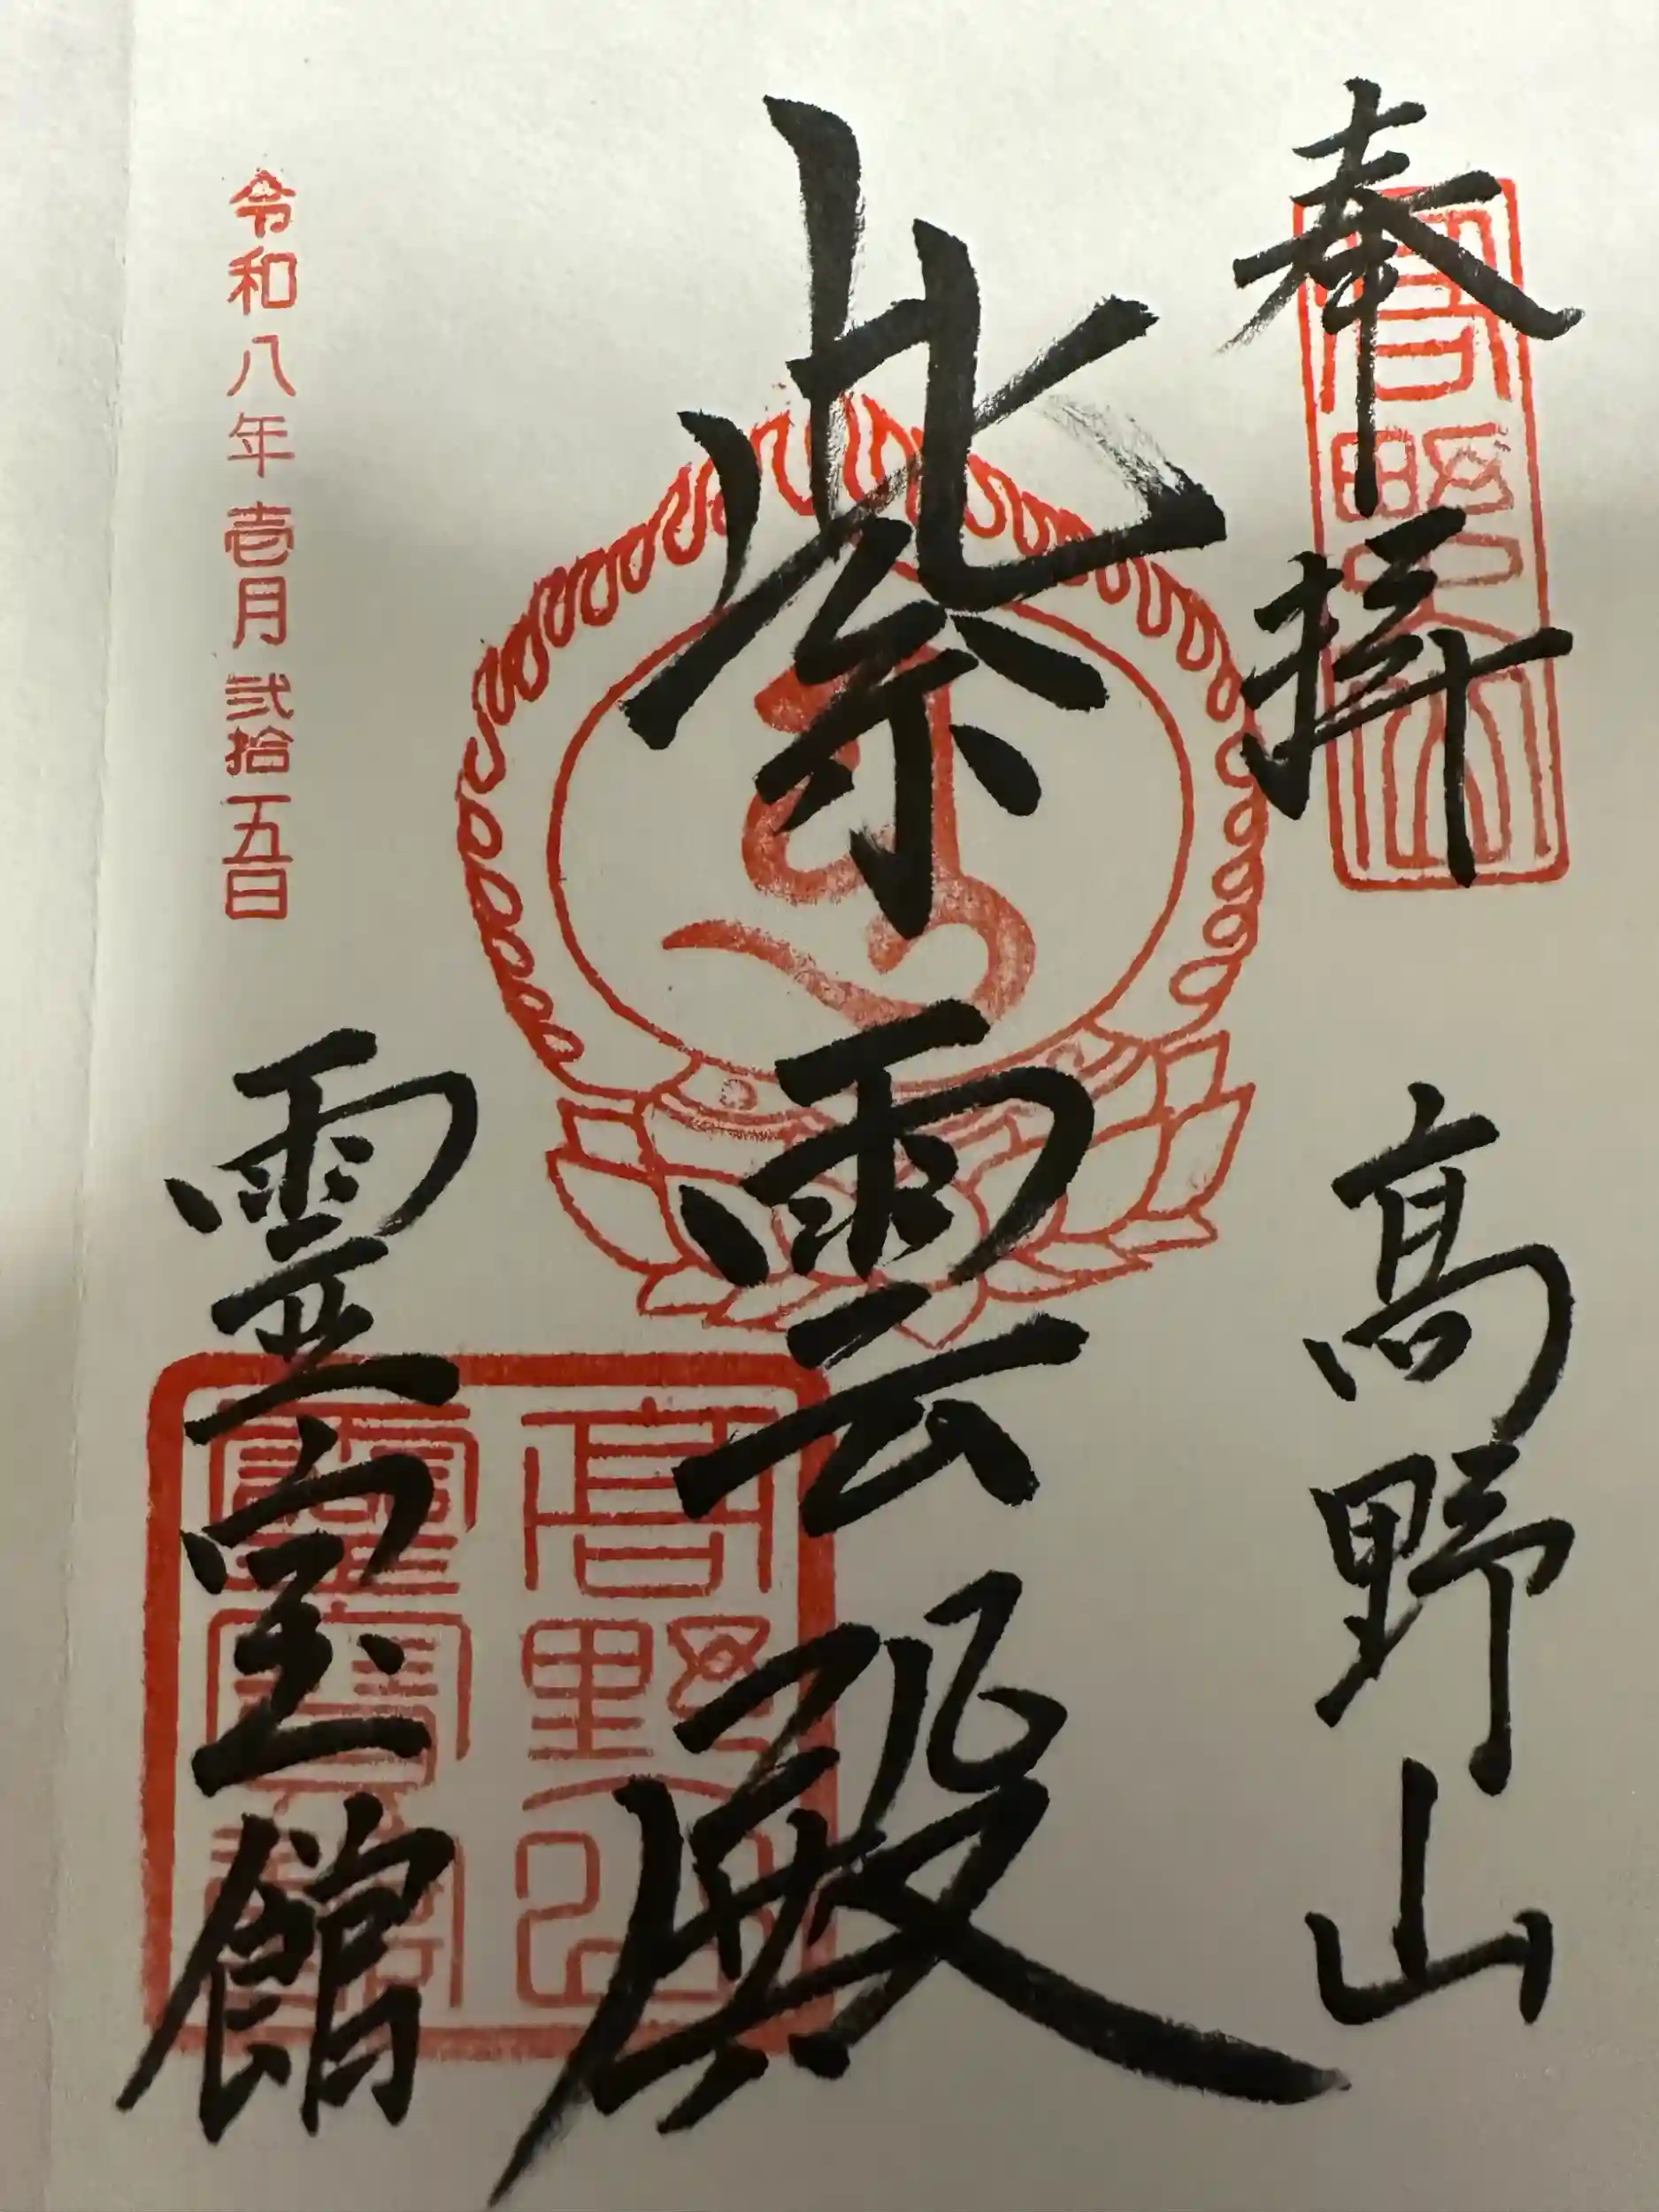 奉拝
高野山
紫雲殿
令和八年壱月弐拾五日
霊宝館
高野山
霊寶館